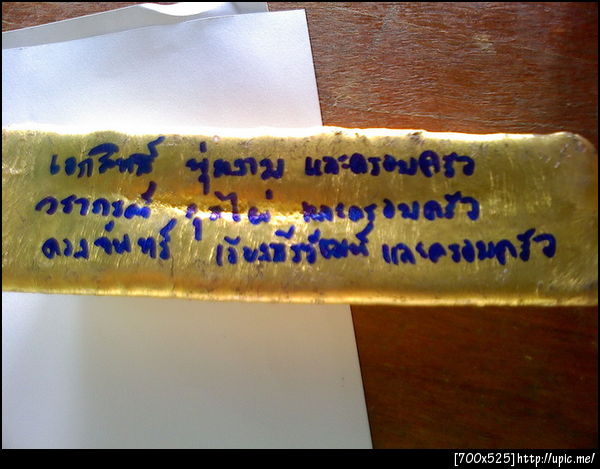 เอกสิทธิ์ พุ่มงาม และครอบครัว
วราภรณ์ และครอบครัว
ดวงจันทร์ เวียงธีรวัฒน์ และครอบครัว
[700x525]http://upic.me/